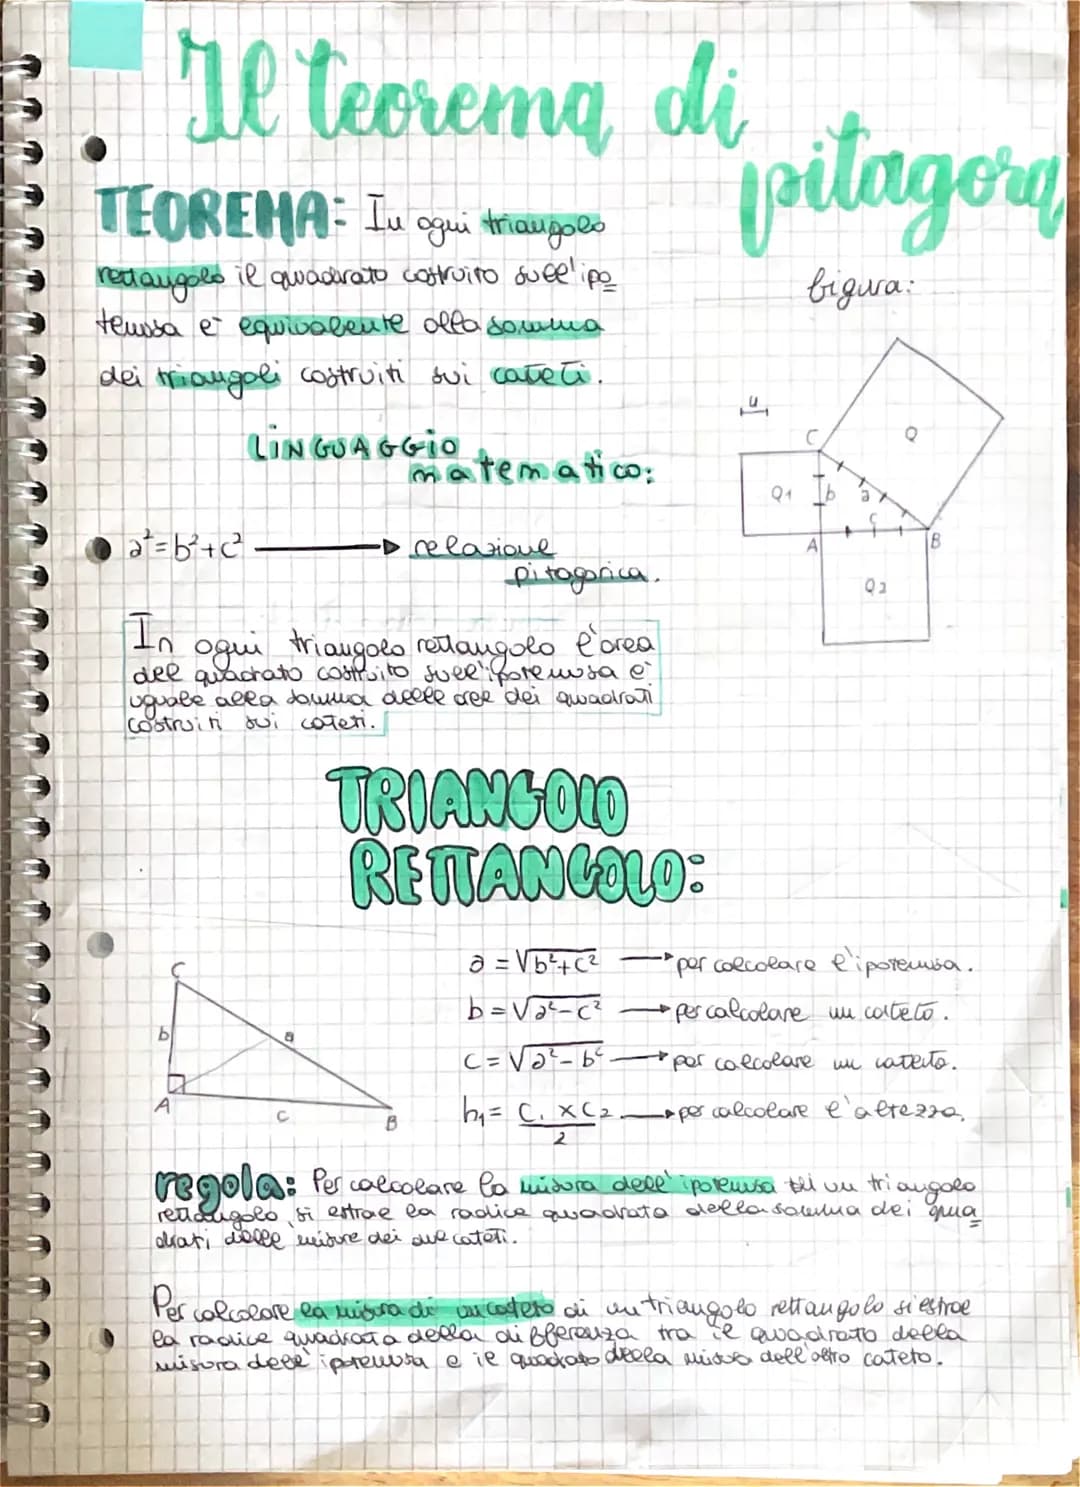 Il teorema di
pitagora
TEOREMA: In ogni triangolo
rettangolo il quadrato costruito sull'ipo
tenusa è equivalente alla somma
dei triangoli costruiti sui cateti.
figura:
u
C
Q
Q1
b
a
c
A
B
Q2
LINGUAGGIO
matematico:
a²=b²+c² → relazione
pitagorica.
In ogni triangolo rettangolo l'area
del quadrato costruito sull'ipotenusa è
uguale alla somma delle aree dei quadrati
costruiti sui cateti.
TRIANGOLO
RETTANGOLO:
C
b
a
A
c
B
a = √b²+c² → per calcolare l'ipotenusa.
b = √a²-c² → per calcolare un cateto.
c = √a²-b² → per calcolare un cateto.
h₁ = C₁ x C₂ → per calcolare l'altezza.
2
regola: Per calcolare la misura dell'ipotenusa di un triangolo
rettangolo, si estrae la radice quadrata della somma dei qua
drati delle misure dei due cateti.
Per calcolare la misura di un cateto di un triangolo rettangolo si estrae
la radice quadrata della differenza tra il quadrato della
misura dell'ipotenusa e il quadrato della misura dell'altro cateto.